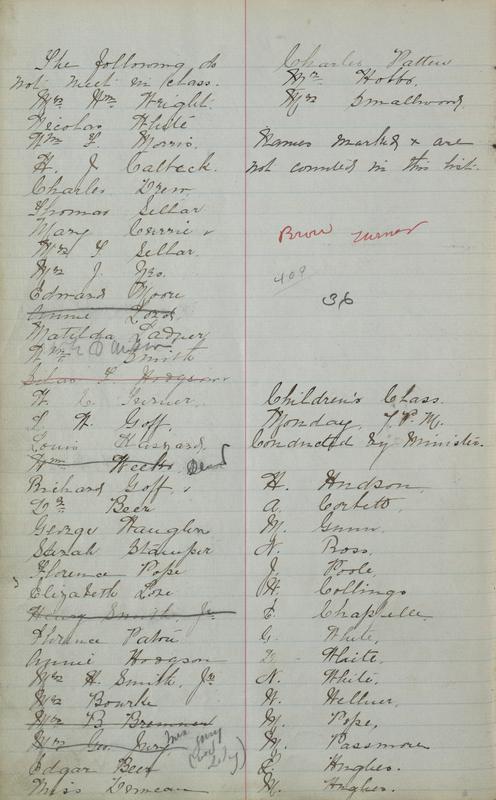 The following do
not meet in class.
Mrs Wm Wright
Nicolas White
Wm F Morris.
H. J Calbeck.
Charles Drew
Thomas Sellar
Mary Currie
Mrs T Sellar.
Mrs J.
Edward Moore
Annie
Matilda Ladner
Wm Smith
Hodgson
H. C. Turner.
L. H. Goff.
Louis
Wm Weeks Dead
Richard Goff.
Beer
George Vaughn
Sarah Stamper
Florence Pope
Elizabeth
Henry Smith Jr
Florence Paton
Annie Hodgson
Mrs H. Smith, Jr
Mrs Bourke
Mrs B Bremner
Mrs Geo.
Edgar Beer
Miss
Charles Patten
Mrs Hobbs.
Mrs Smallwood.
Names marked x are
not counted in this list.
Turner
409
36
Children's Class.
Monday, 7 P.M.
Conducted by Minister.
H. Hudson,
A. Corbett,
M. Gunn.
N. Ross,
J. Poole,
H. Collings
E. Chapelle.
G. White,
White,
N. White,
W. Hellner,
M. Pope,
M. Passmore
E. Hughes.
M. Hughes.